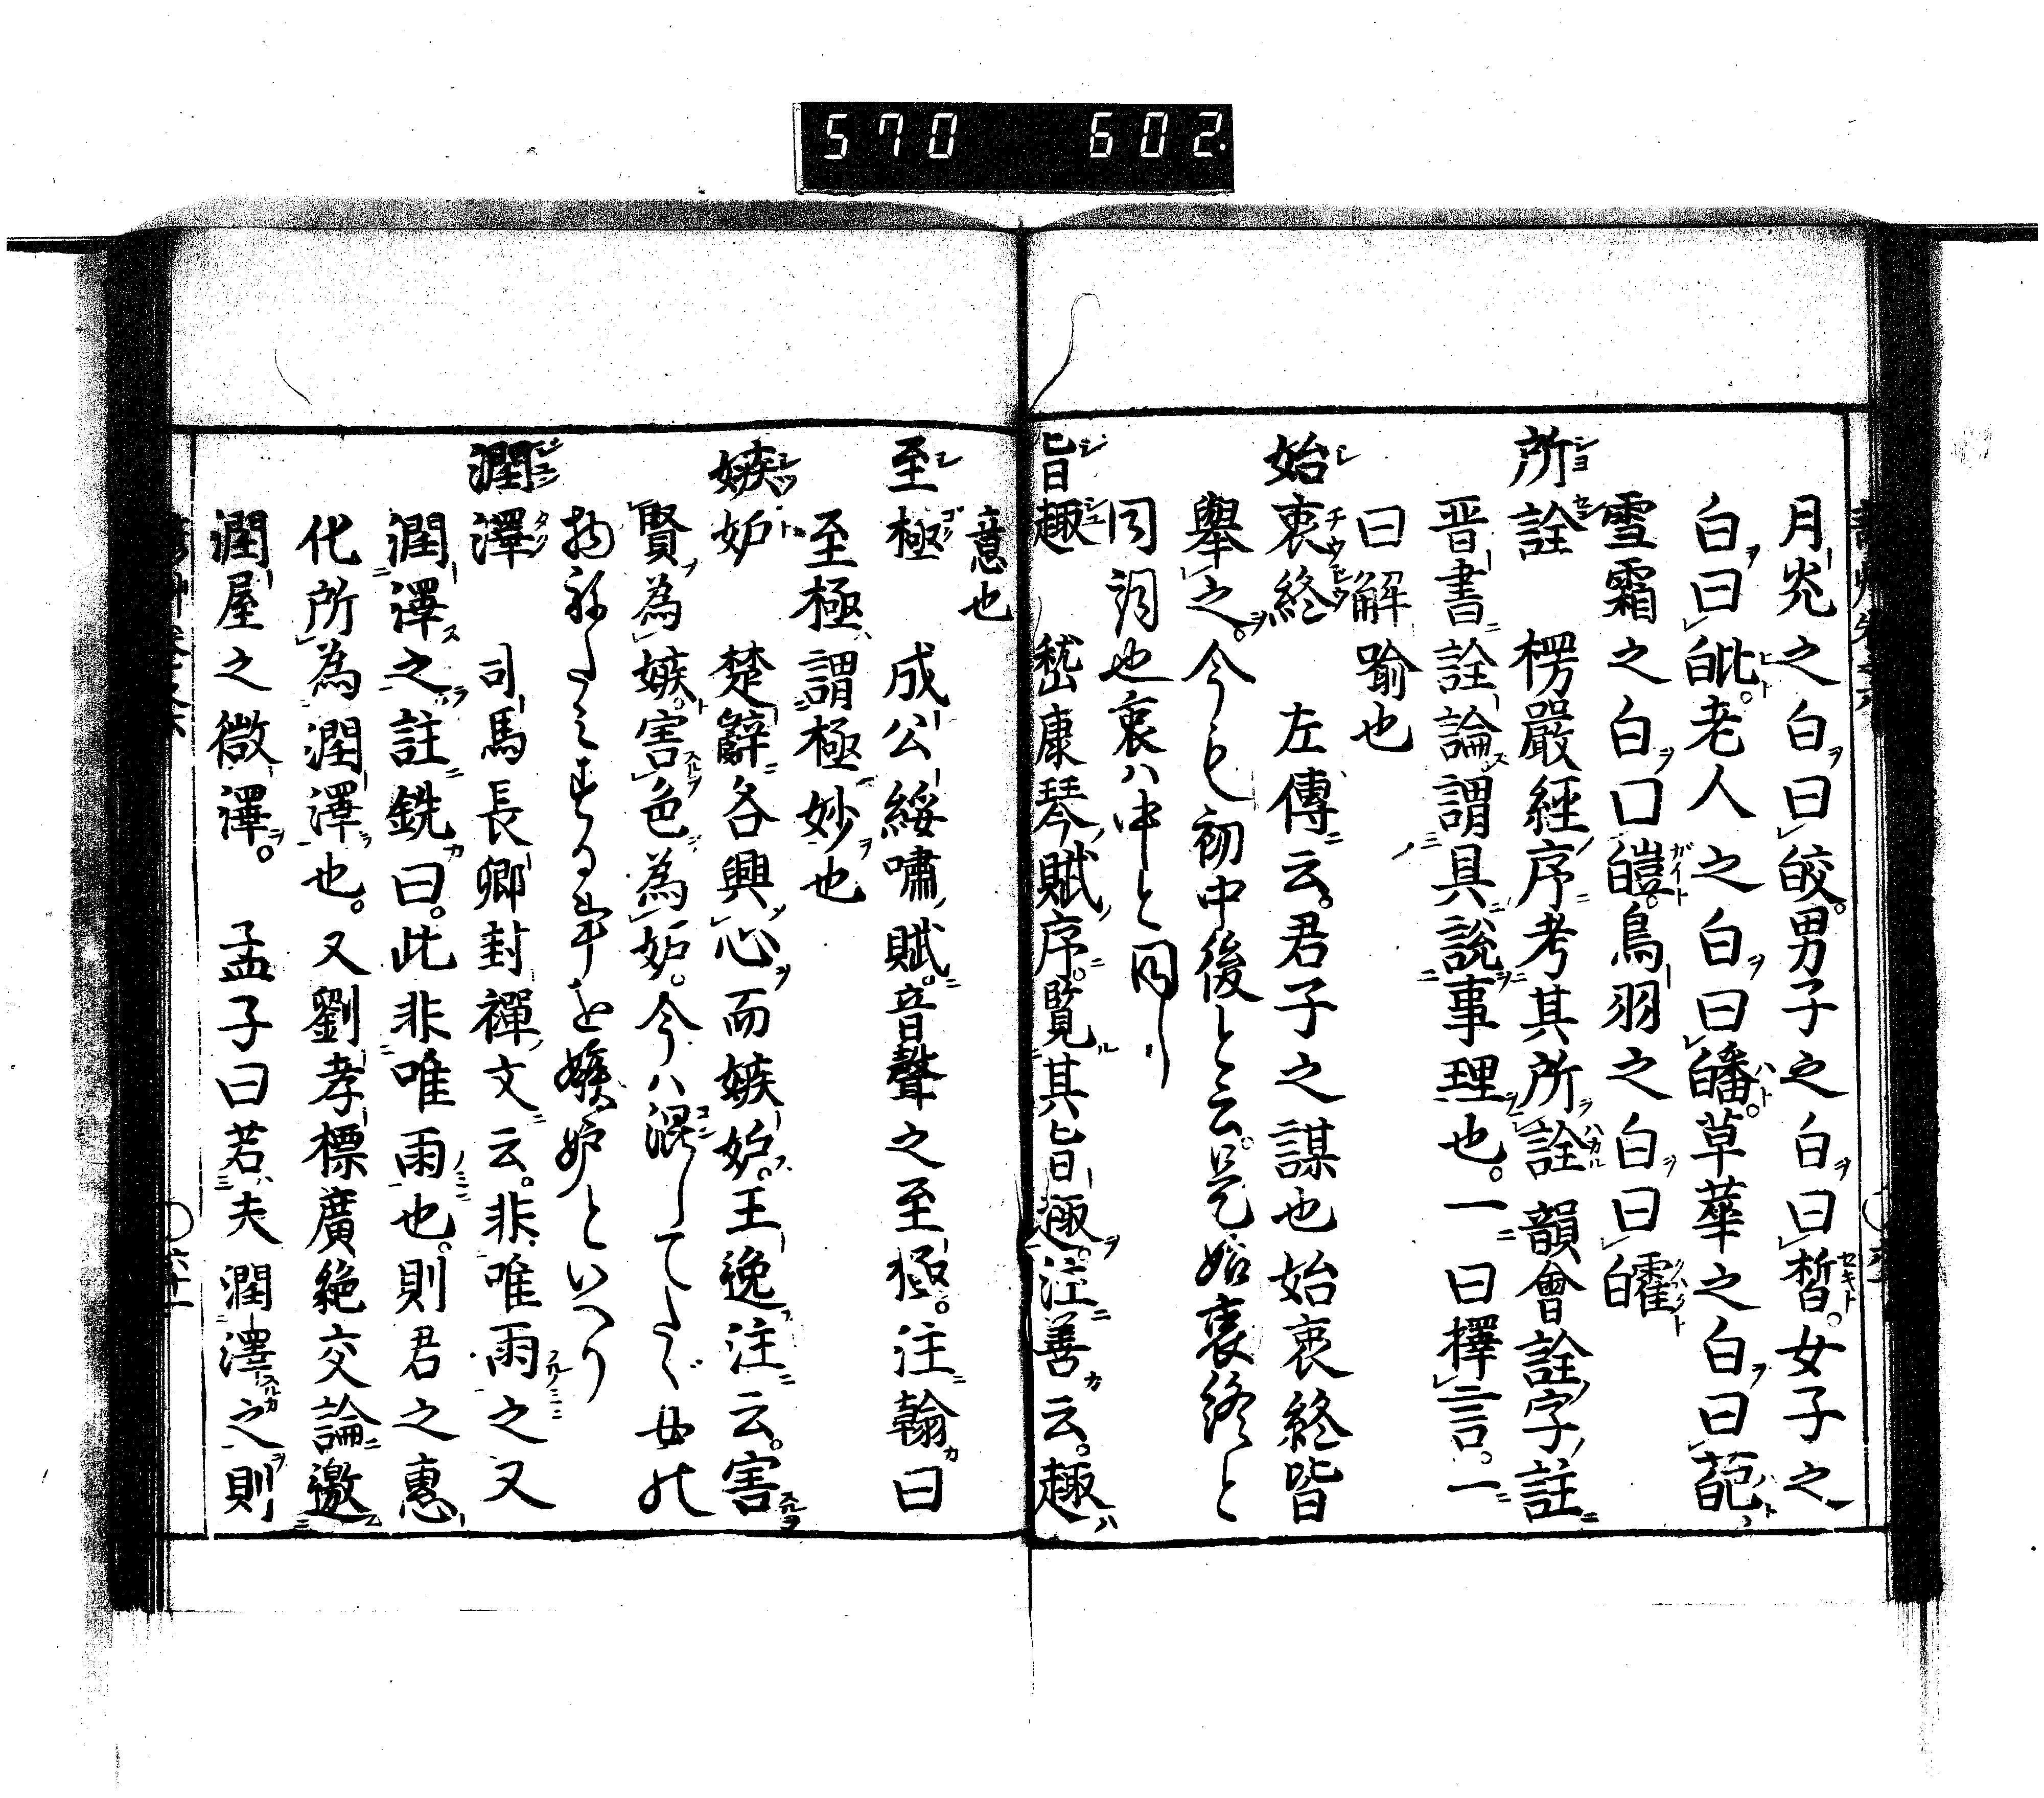 570 602.
月光之白曰皎。男子之白曰皙。女子之
白曰㿫。老人之白曰皤。草華之白曰葩
雪霜之白曰皚。鳥羽之白曰皬
所詮 楞嚴經序考其所詮 韻會詮字註
晋書詮論謂具説事理也。一曰擇言。一
曰解喻也
始衷終 左傳云。君子之謀也始衷終皆
舉之。今も初中後と云。是始衷終と
同詞也衷ハ中と同し
旨趣 嵇康琴賦序。覧其旨趣。注善云。趣
意也
至極 成公綏嘯賦。音聲之至極。注翰曰
至極謂極妙也
嫉妬 楚辭各興心而嫉妬。王逸注云。害
賢為嫉。害色為妬。今ハ混してたゞ女の
物ねたみする事を嫉妬といへり
潤澤 司馬長卿封禪文云。非唯雨之又
潤澤之註銑曰。此非唯雨也。則君之惠
化所為潤澤也。又劉孝標廣絶交論邀
潤屋之微澤。 孟子曰若夫潤澤之則